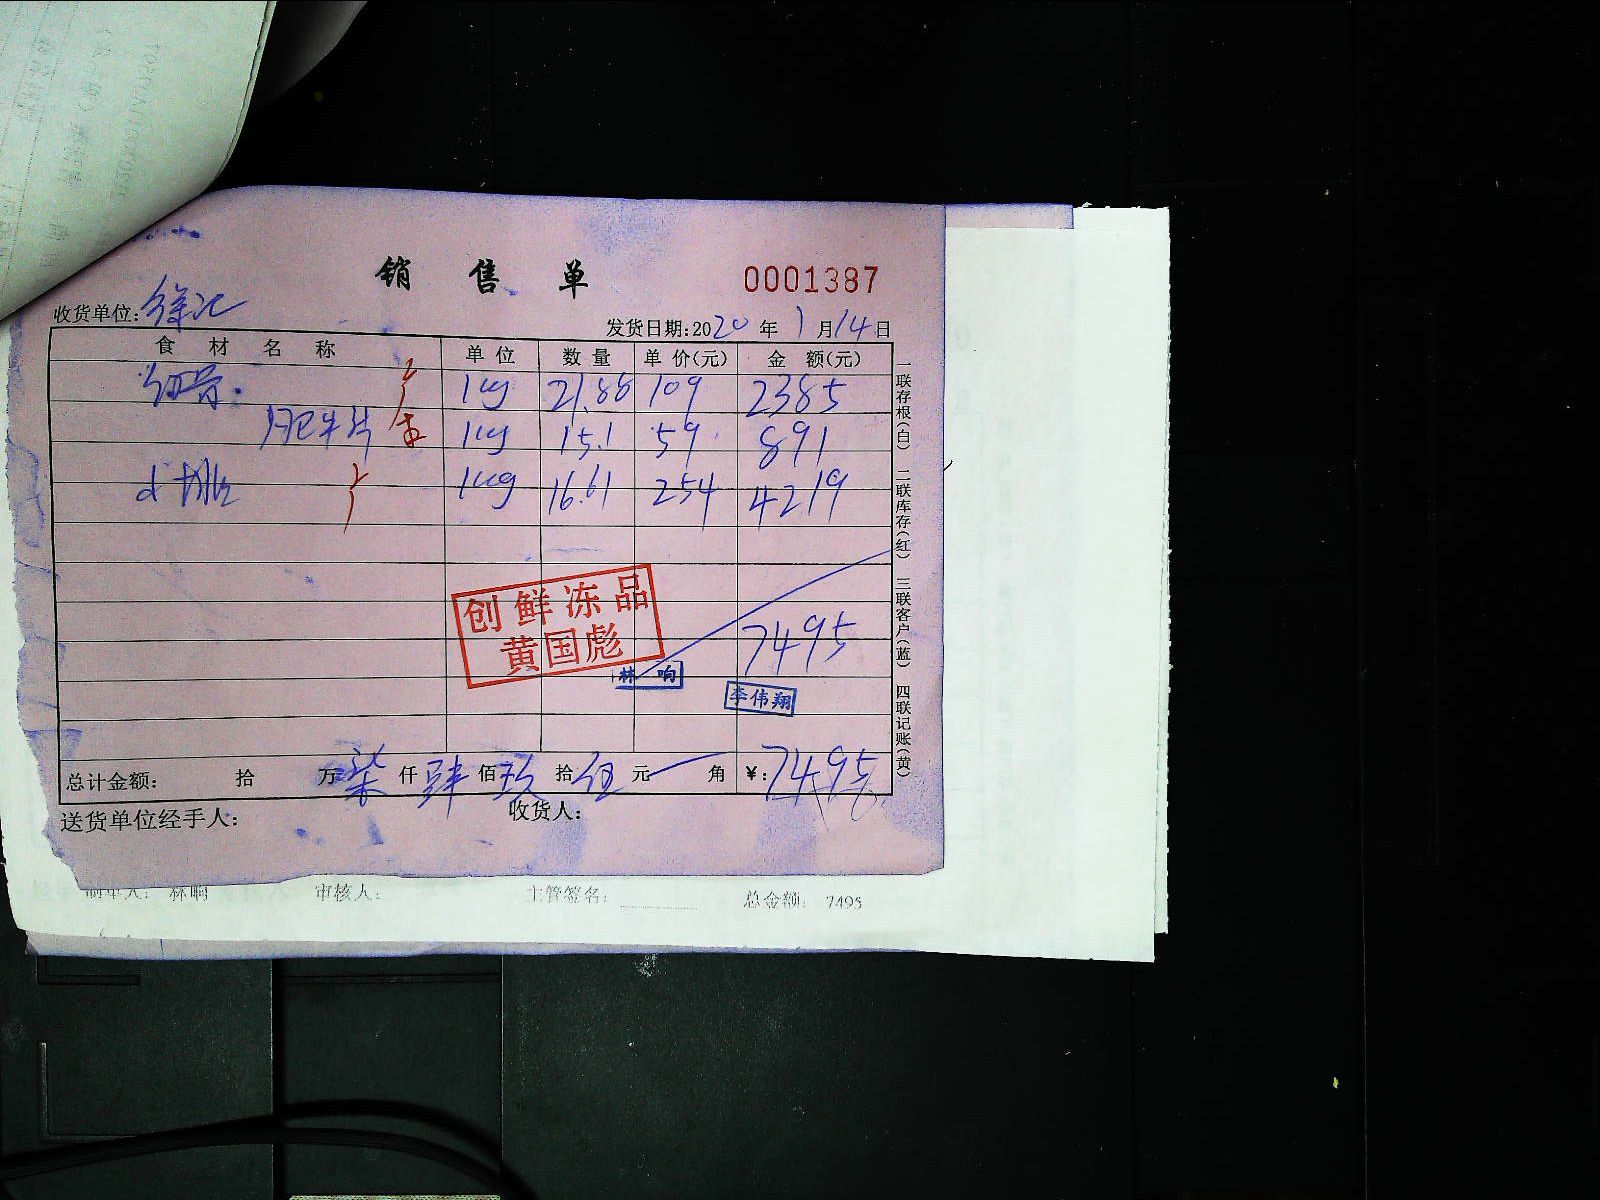 销售单
0001387
收货单位:徐汇
发货日期:2020年1月14日
食材名称 单位 数量 单价(元) 金额(元)
1kg 21.88 109 2385
肥牛片 1kg 15.1 59 891
1kg 16.61 254 4219
创鲜冻品
黄国彪
7495
林响
李伟翔
总计金额: 拾 万柒仟肆佰玖拾伍元 角 ¥:7495
送货单位经手人: 收货人:
一联存根(白) 二联库存(红) 三联客户(蓝) 四联记账(黄)
制单人: 林响 审核人: 主管签名: 总金额: 7495